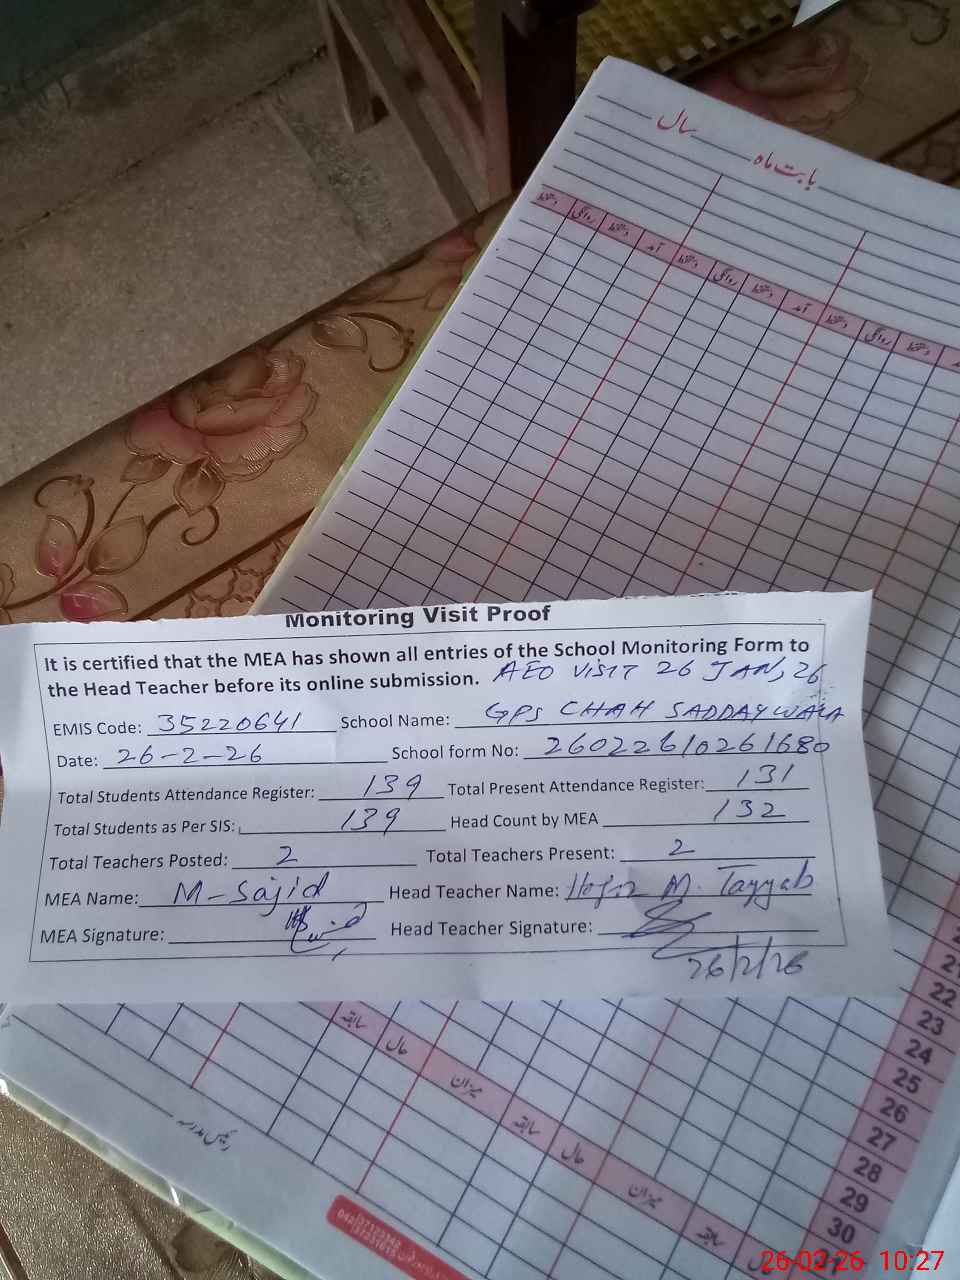 سال
بابت ماہ
دستخط روانگی دستخط آمد دستخط روانگی دستخط آمد دستخط روانگی دستخط
Monitoring Visit Proof
It is certified that the MEA has shown all entries of the School Monitoring Form to
the Head Teacher before its online submission. AEO VISIT 26 JAN, 26
EMIS Code: 35220641 School Name: GPS CHAH SADDAYWALA
Date: 26-2-26 School form No: 26022610261680
Total Students Attendance Register: 139 Total Present Attendance Register: 131
Total Students as Per SIS: 139 Head Count by MEA 132
Total Teachers Posted: 2 Total Teachers Present: 2
MEA Name: M-Sajid Head Teacher Name: M. Tayyab
MEA Signature: Head Teacher Signature:
26/2/26
22
23
24
25
26
27
28
29
30
سابقہ حال میزان سابقہ حال میزان سابقہ
رئیس مدرسہ
26-02-26 10:27